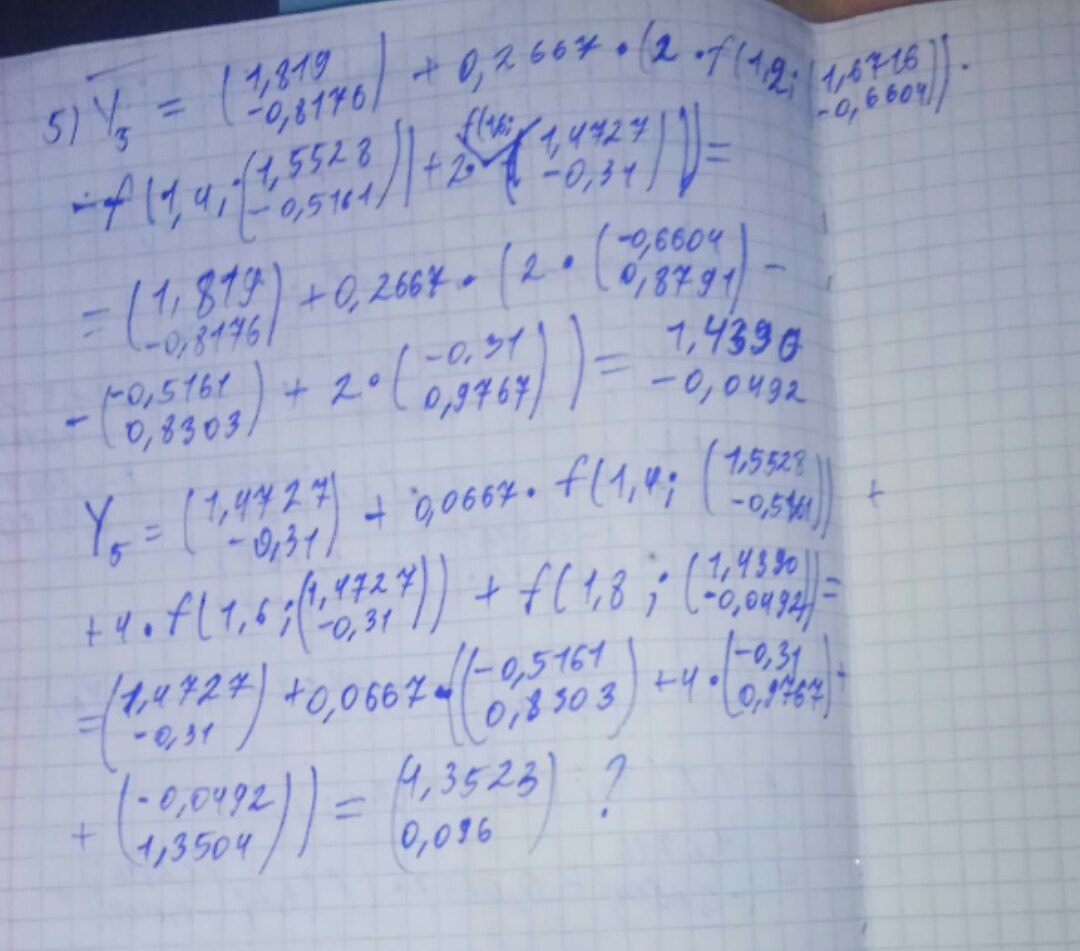 5) Y̅₅ = (1,819 -0,8176) + 0,2667 · (2 · f(1,2; (1,6716 -0,6604)) ·
- f(1,4; (1,5528 -0,5161)) + 2· f(1,6; (1,4727 -0,31))) =
= (1,819 -0,8176) + 0,2667 · (2 · (-0,6604 0,8791) -
- (-0,5161 0,8303) + 2 · (-0,31 0,9767)) = 1,4390 -0,0492
Y₅ = (1,4727 -0,31) + 0,0667 · f(1,4; (1,5528 -0,5161)) +
+ 4 · f(1,6; (1,4727 -0,31)) + f(1,8; (1,4390 -0,0492)) =
= (1,4727 -0,31) + 0,0667 · ((-0,5161 0,8303) + 4 · (-0,31 0,9767) +
+ (-0,0492 1,3504)) = (1,3523 0,096) ?